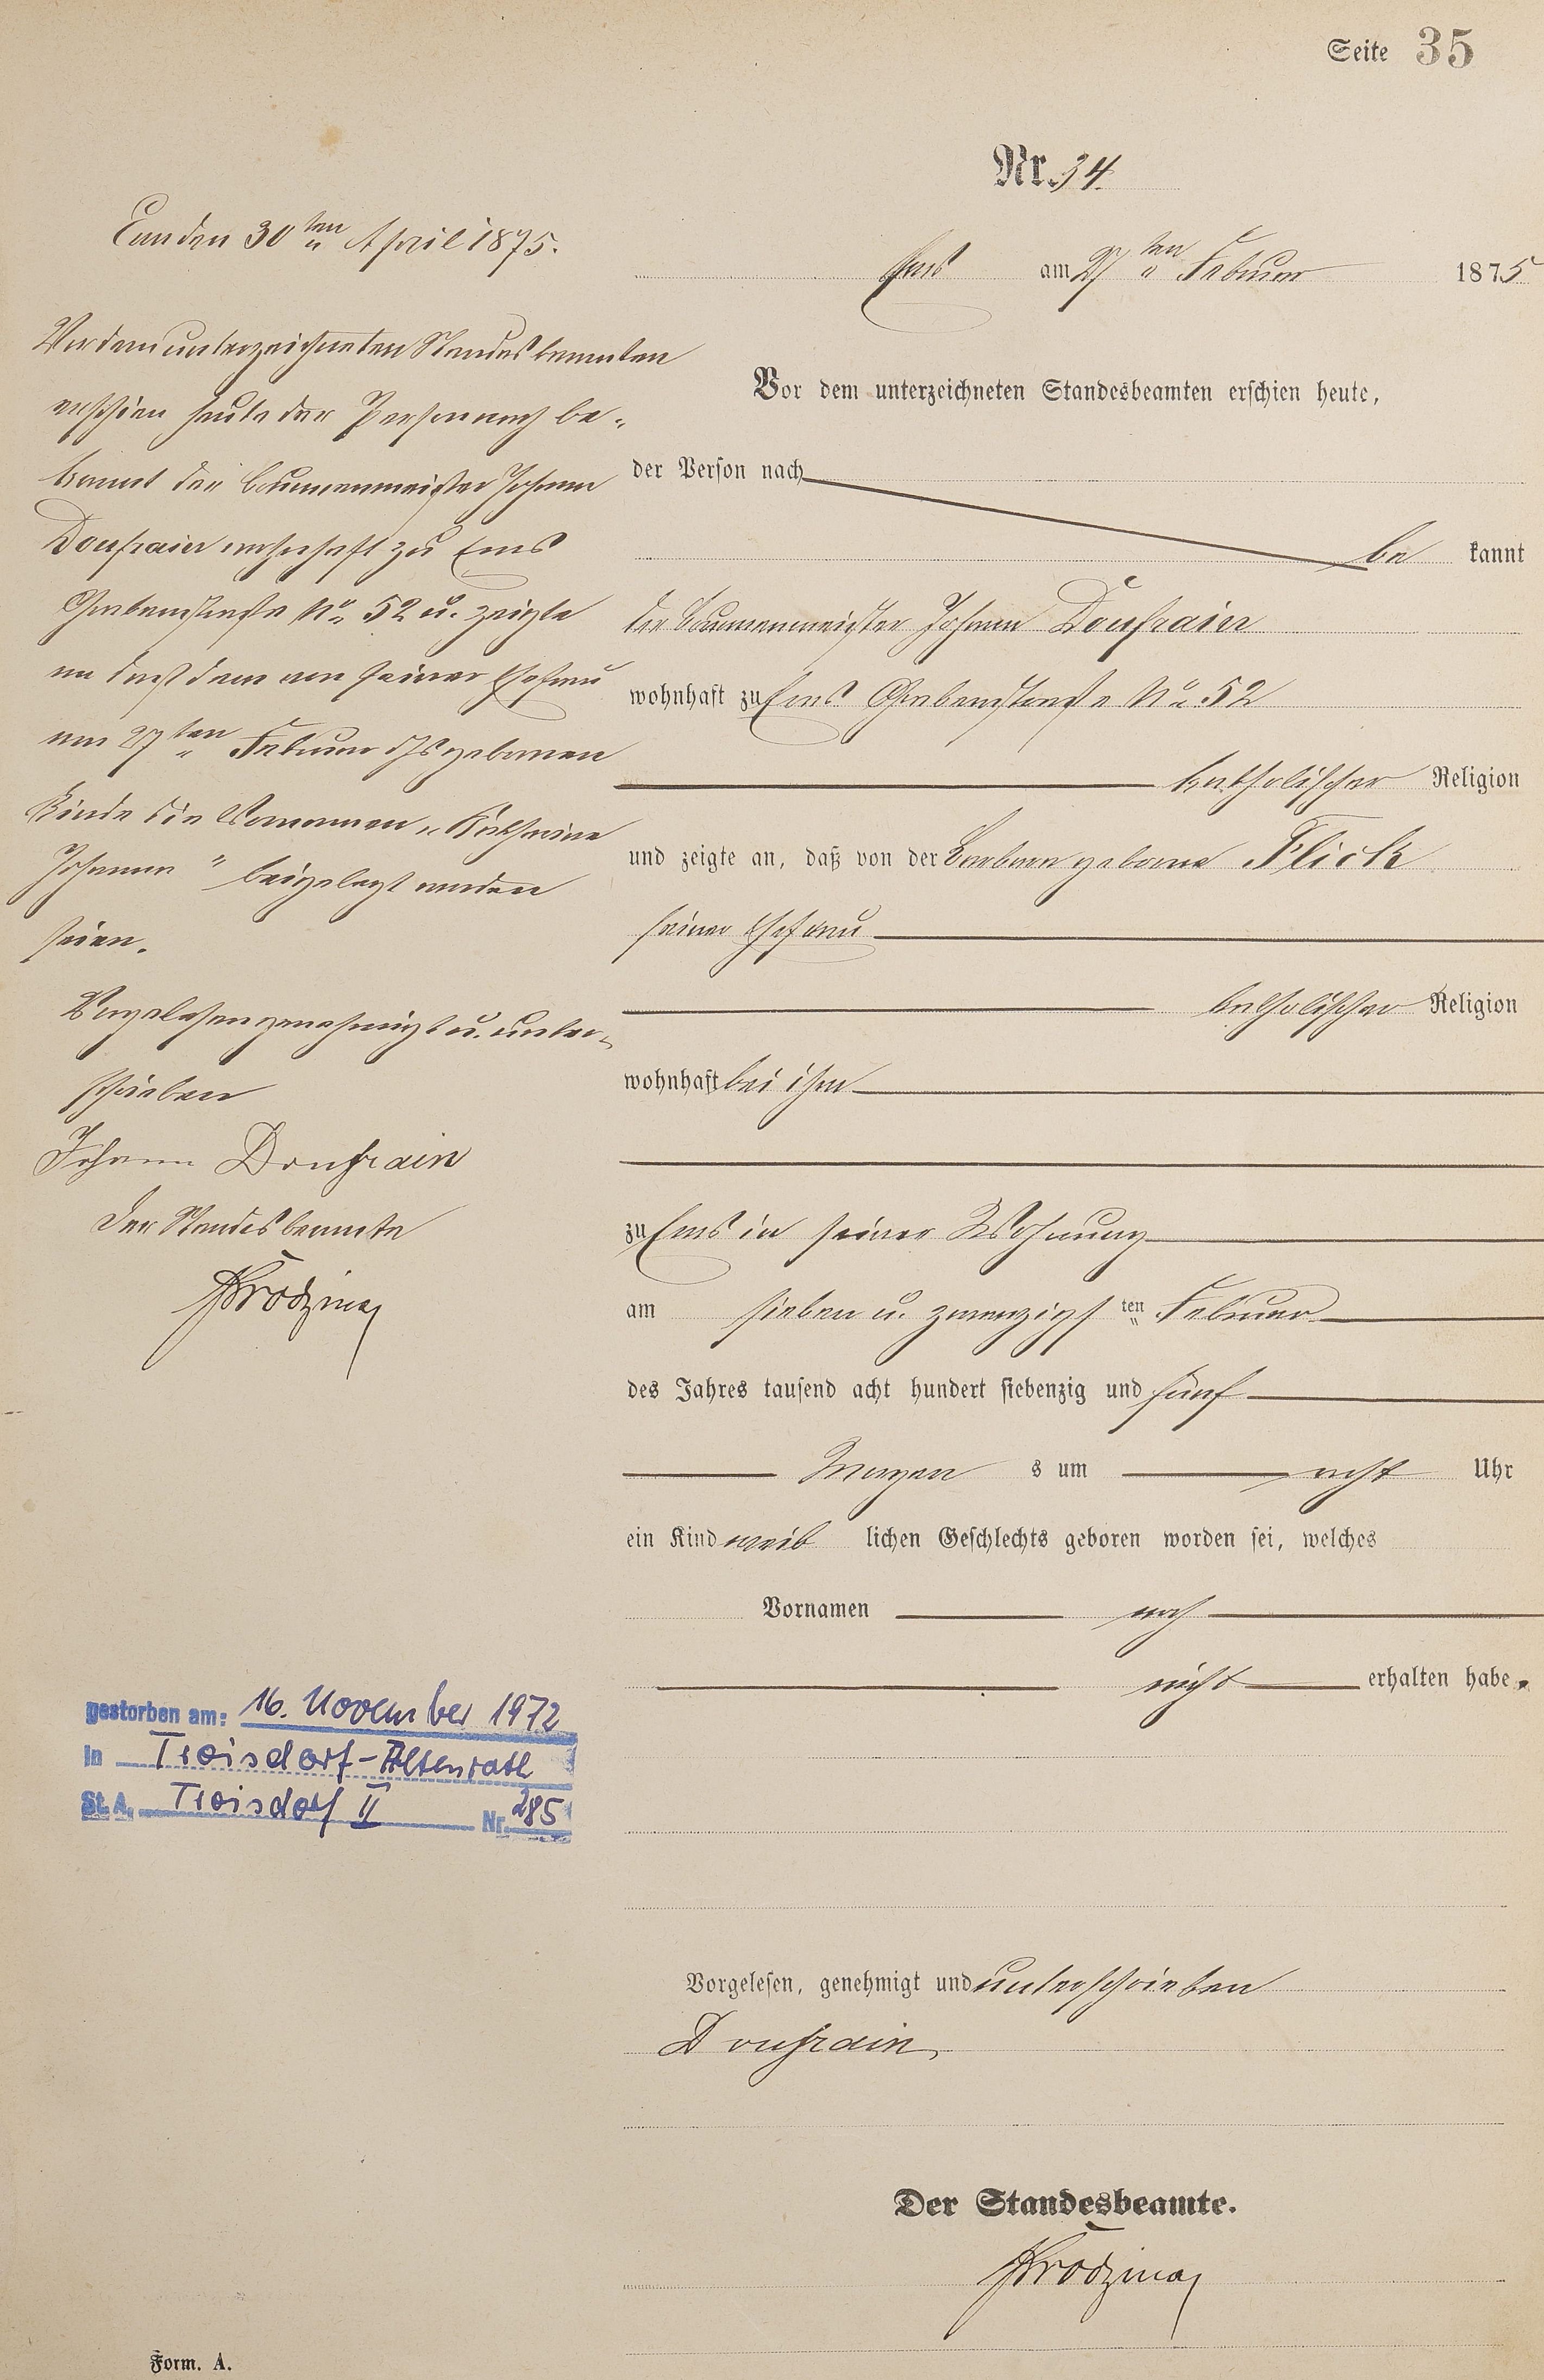 Seite 35
Nr. 34.
Ems am 27ten Februar 1875
Vor dem unterzeichneten Standesbeamten erschien heute,
der Person nach
be kannt
der Brunnenmeister Johann Doufrain
wohnhaft zu Ems Grabenstraße No 52
katholischer Religion
und zeigte an, daß von der Barbara geborne Flick
seiner Ehefrau
katholischer Religion
wohnhaft bei ihm
zu Ems in seiner Wohnung
am sieben u. zwanzigsten Februar
des Jahres tausend acht hundert siebenzig und fünf
Morgen s um acht Uhr
ein Kind weib lichen Geschlechts geboren worden sei, welches
Vornamen noch
nicht erhalten habe.
Vorgelesen, genehmigt und unterschrieben
Doufrain
Der Standesbeamte.
Form. A.
den 30ten April 1875.
Vor dem unterzeichneten Standesbeamten
erschien heute der Person nach be-
kannt der Brunnenmeister Johann
Doufrain wohnhaft zu Ems
Grabenstraße No 52 u. zeigte
an daß dem von seiner Ehefrau
am 27ten Februar geborenen
Kinde die Vornamen „Katharine
Johanna" beigelegt worden
seien.
Vorgelesen genehmigt u. unter-
schrieben
Johann Doufrain
Der Standesbeamte
gestorben am: 16. November 1972
in Troisdorf-Altenrath
St. A. Troisdorf II Nr. 285